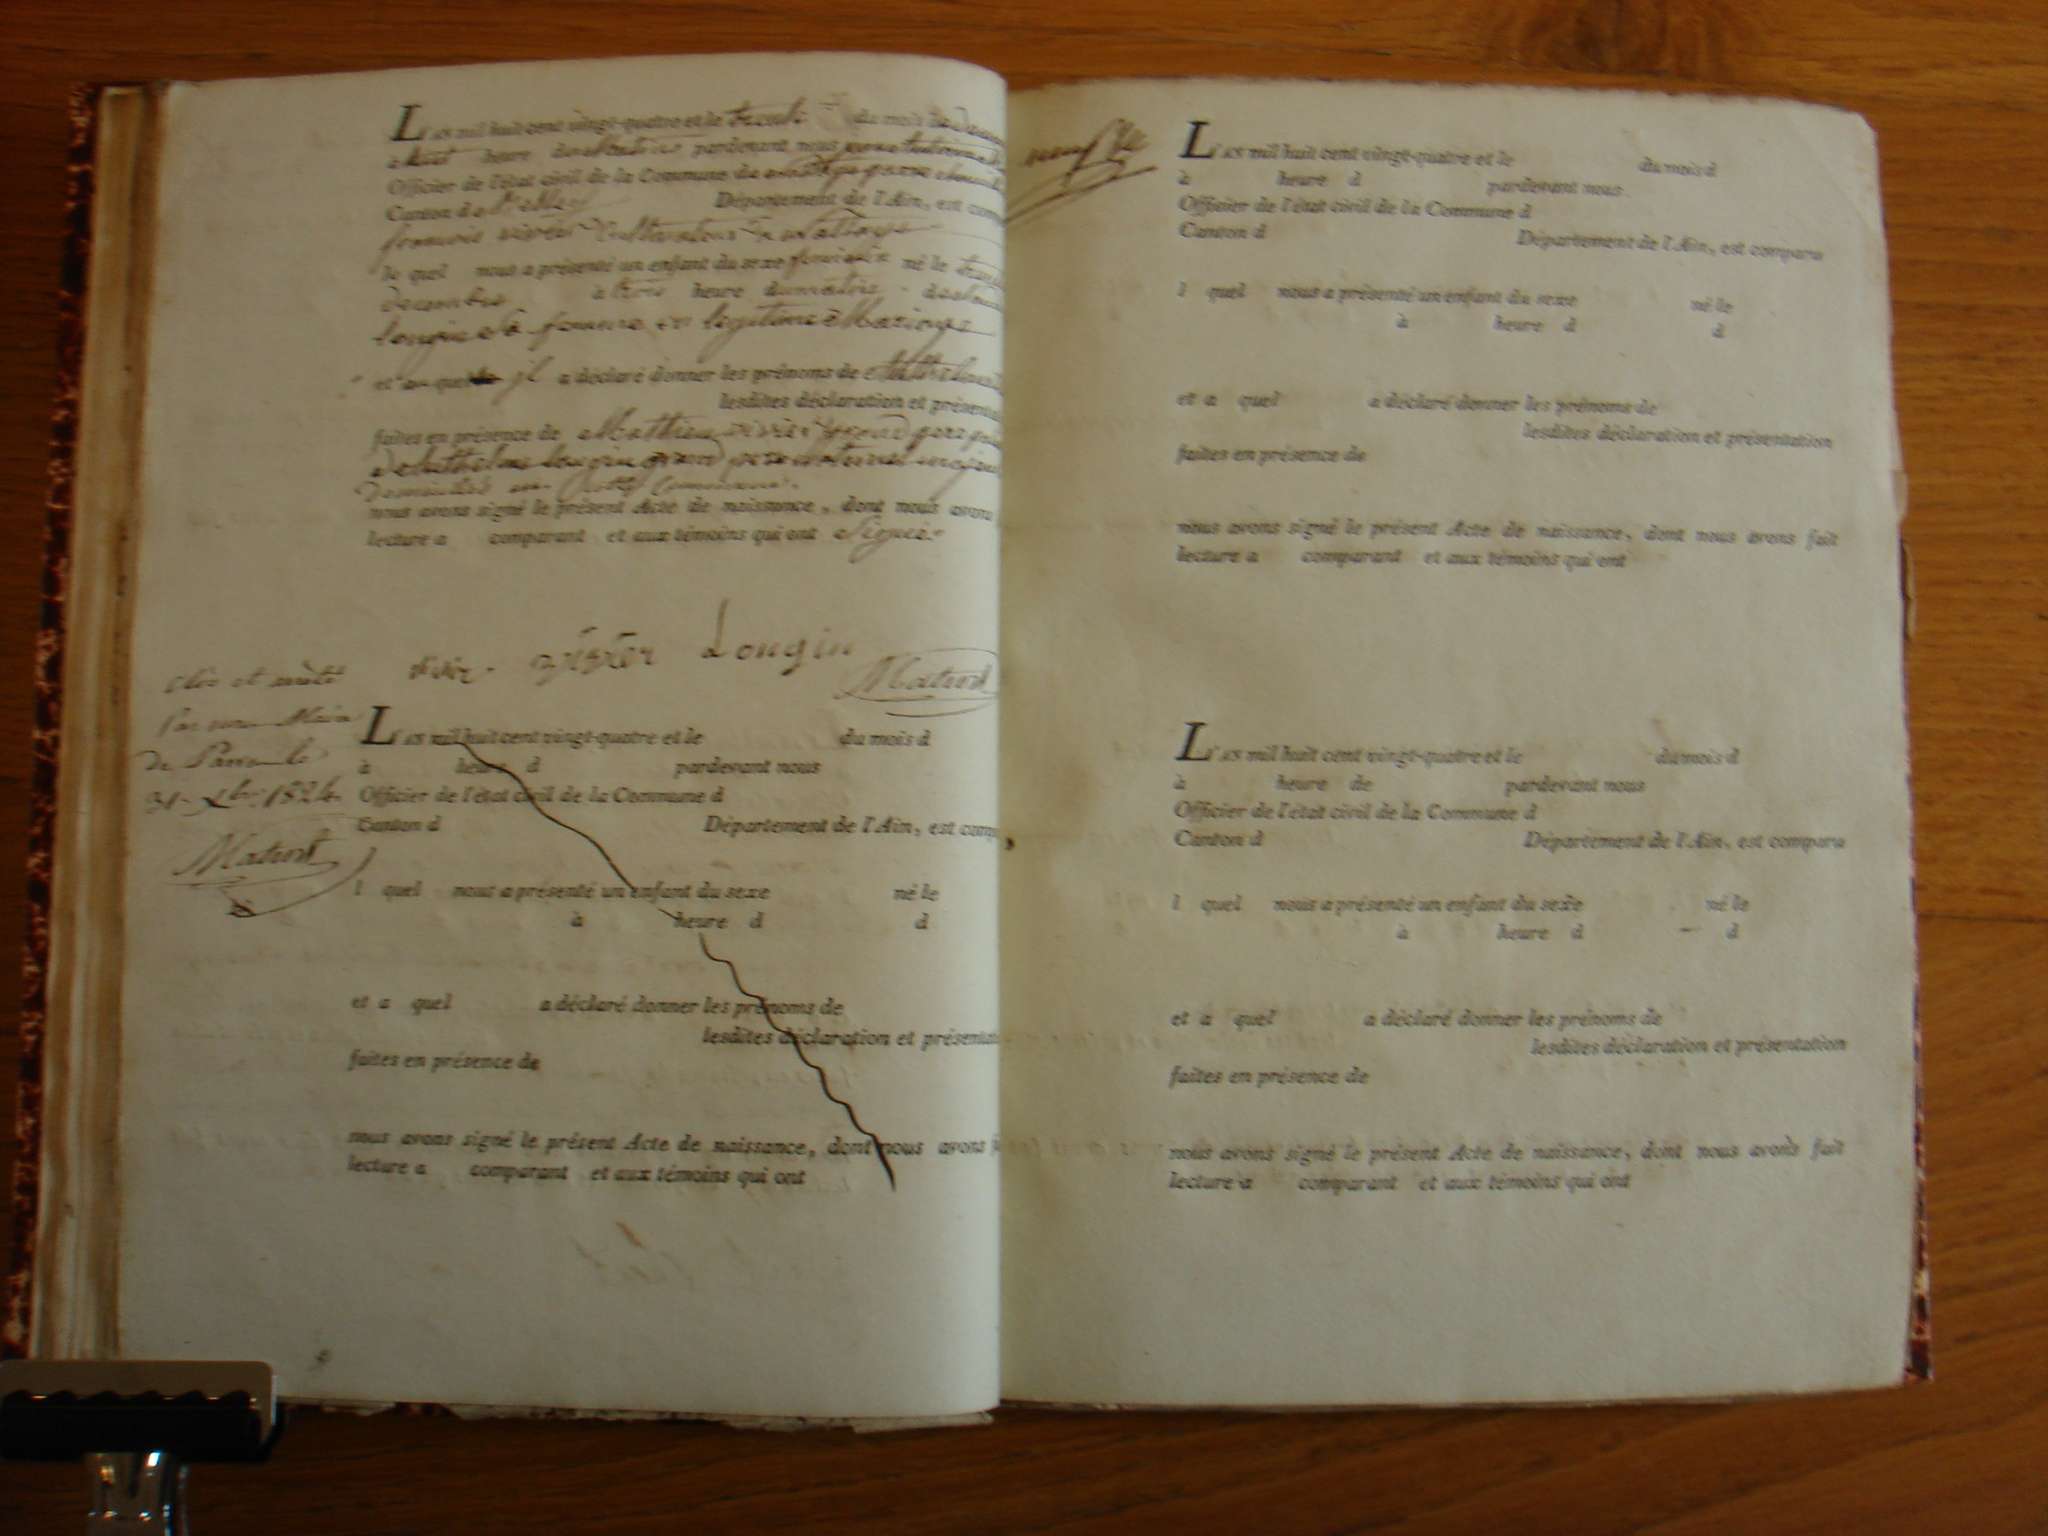 L'AN mil huit cent vingt-quatre et le trente du mois de
a huit heure du pardevant nous
Officier de l'état civil de la Commune de
Canton de Département de l'Ain, est comp
françois vivier Cultivateur
le quel nous a présenté un enfant du sexe feminin né le
decembre à trois heure du matin
longin sa femme en legitime Mariage
et au quel il a déclaré donner les prénoms de
lesdites déclaration et présenta
faites en présence de Mathieu vivier grand pere
longin grand pere
Domiciliés en Commune.
nous avons signé le présent Acte de naissance, dont nous avons
lecture a comparant et aux témoins qui ont Signés.
vivier Longin
Matrod
Clos et arrêté
Par nous Maire
de le
31 Xbre 1824
Matrod
L'AN mil huit cent vingt-quatre et le du mois d
à heure d pardevant nous
Officier de l'état civil de la Commune d
Canton d Département de l'Ain, est comp
l quel nous a présenté un enfant du sexe né le
à heure d d
et a quel a déclaré donner les prénoms de
lesdites déclaration et présentat
faites en présence de
nous avons signé le présent Acte de naissance, dont nous avons f
lecture a comparant et aux témoins qui ont
L'AN mil huit cent vingt-quatre et le du mois d
à heure d pardevant nous
Officier de l'état civil de la Commune d
Canton d Département de l'Ain, est comparu
l quel nous a présenté un enfant du sexe né le
à heure d d
et a quel a déclaré donner les prénoms de
lesdites déclaration et présentation
faites en présence de
nous avons signé le présent Acte de naissance, dont nous avons fait
lecture a comparant et aux témoins qui ont
L'AN mil huit cent vingt-quatre et le du mois d
à heure de pardevant nous
Officier de l'état civil de la Commune d
Canton d Département de l'Ain, est comparu
l quel nous a présenté un enfant du sexe né le
à heure d d
et a quel a déclaré donner les prénoms de
lesdites déclaration et présentation
faites en présence de
nous avons signé le présent Acte de naissance, dont nous avons fait
lecture a comparant et aux témoins qui ont